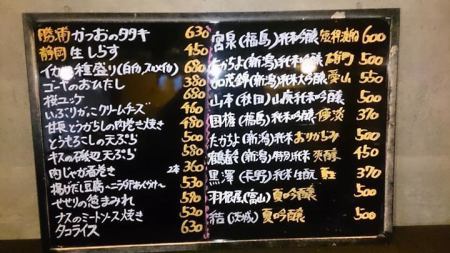 勝浦 かつおのタタキ 630
静岡 生しらす 450
イカ 種盛り(白イカ スルメイカ) 680
ゴーヤのおひたし 380
桜ユッケ 680
いぶりがっこクリームチーズ 460
甘長とうがらしの肉巻き焼き 480
とうもろこしの天ぷら 500
キスの磯辺天ぷら 500
肉じゃが春巻き 2本 360
揚げだし豆腐 530
せせりの 590
ナスのミートソース焼き 520
タコライス 630
宮泉(福島)純米吟醸 600
たかちよ(新潟)純米吟醸 雄町 500
加茂錦(新潟)純米吟醸 愛山 550
山本(秋田)山廃純米吟醸 500
国権(福島)純米吟醸 370
たかちよ(新潟)純米 おりがらみ 500
鶴齢(新潟)特別純米 爽醇 450
黒澤(長野)純米生酛 370
羽根屋(富山)夏吟醸 500
結(茨城)夏吟醸 500